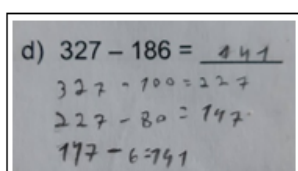 d) 327 – 186 = 141
327 - 100 = 227
227 - 80 = 147
147 - 6 = 141